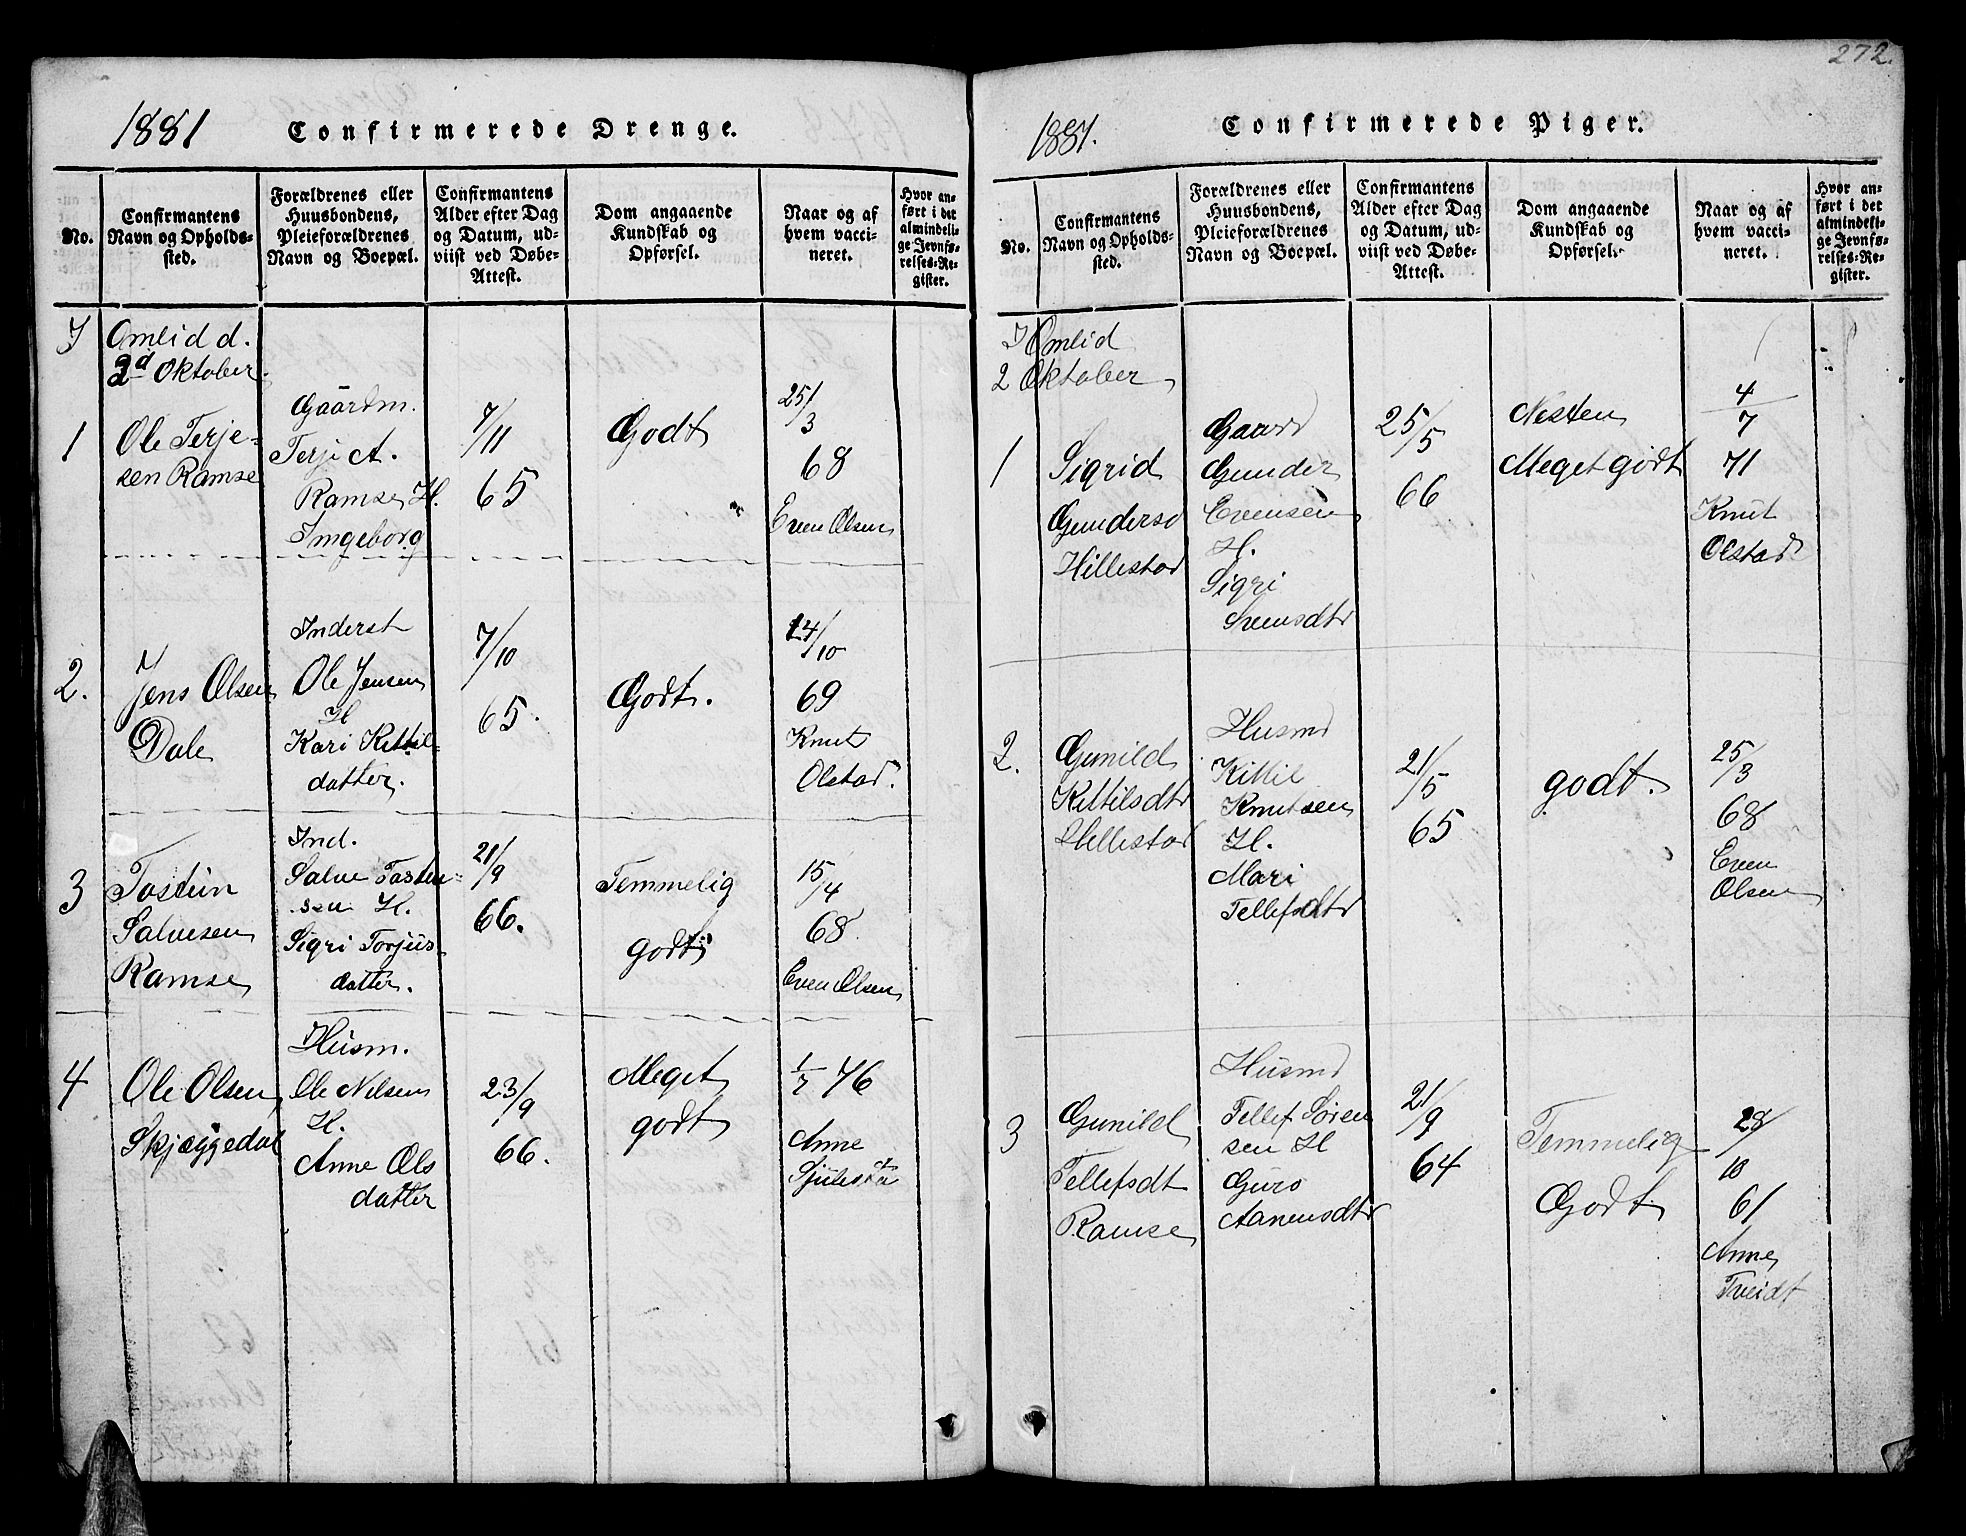 1881 Confirmerede Drenge.
No.
Confirmantens
Navn og Opholds-
sted.
Forældrenes eller
Huusbondens,
Pleieforældrenes
Navn og Boepæl.
Confirmantens
Alder efter Dag
og Datum, ud-
viist ved Døbe-
Attest.
Dom angaaende
Kundskab og
Opførsel.
Naar og af
hvem vacci-
neret.
Hvor an-
ført i det
almindeli-
ge Jevnfø-
relses-Re-
gister.
I Omlid d.
2d Oktober.
1
Ole Terje-
sen Ramse
Gaardm.
Terje A.
Ramse H.
Ingeborg
7/11
65
Godt
25/3
68
Even Olsen
2.
Jens Olsen
Dale
Inderst
Ole Jensen
H
Kari Kittil-
datter.
7/10
65.
Godt.
14/10
69
Knut
Olstad.
3
Tostein
Salvesen
Ramse
Ind.
Salve Tosten-
sen H.
Sigri Torjus-
datter.
21/9
66.
Temmelig
godt
15/4
68.
Even Olsen
4
Ole Olsen
Skjæggedal
Husm.
Ole Nilsen
H.
Anne Ols
datter
23/9
66.
Meget
godt
1/7 76
Anne
272.
1881. Confirmerede Piger.
No.
Confirmantens
Navn og Opholds-
sted.
Forældrenes eller
Huusbondens,
Pleieforældrenes
Navn og Boepæl.
Confirmantens
Alder efter Dag
og Datum, ud-
viist ved Døbe-
Attest.
Dom angaaende
Kundskab og
Opførsel.
Naar og af
hvem vacci-
neret.
Hvor an-
ført i det
almindeli-
ge Jevnfø-
relses-Re-
gister.
I Omlid
2 Oktober
1
Sigrid
Gundersd
Hillestad
Gaard
Gunder
Evensen
H.
Sigri
Svensdtr
25/5
66
Nesten
Meget godt
4/7
71
Knut
Olstad
2.
Gunild
Kittilsdtr
Hillestad
Husmd
Kittil
Knutsen
H.
Mari
Tellefsdtr
21/5
65
godt.
25/3
68
Even
Olsen
3
Gunild
Tellefsdt
Ramse
Husmd
Tellef Søren
sen H
Guro
Aanensdtr
21/9
64
Temmelig
Godt
28/10
61
Anne
Tveidt